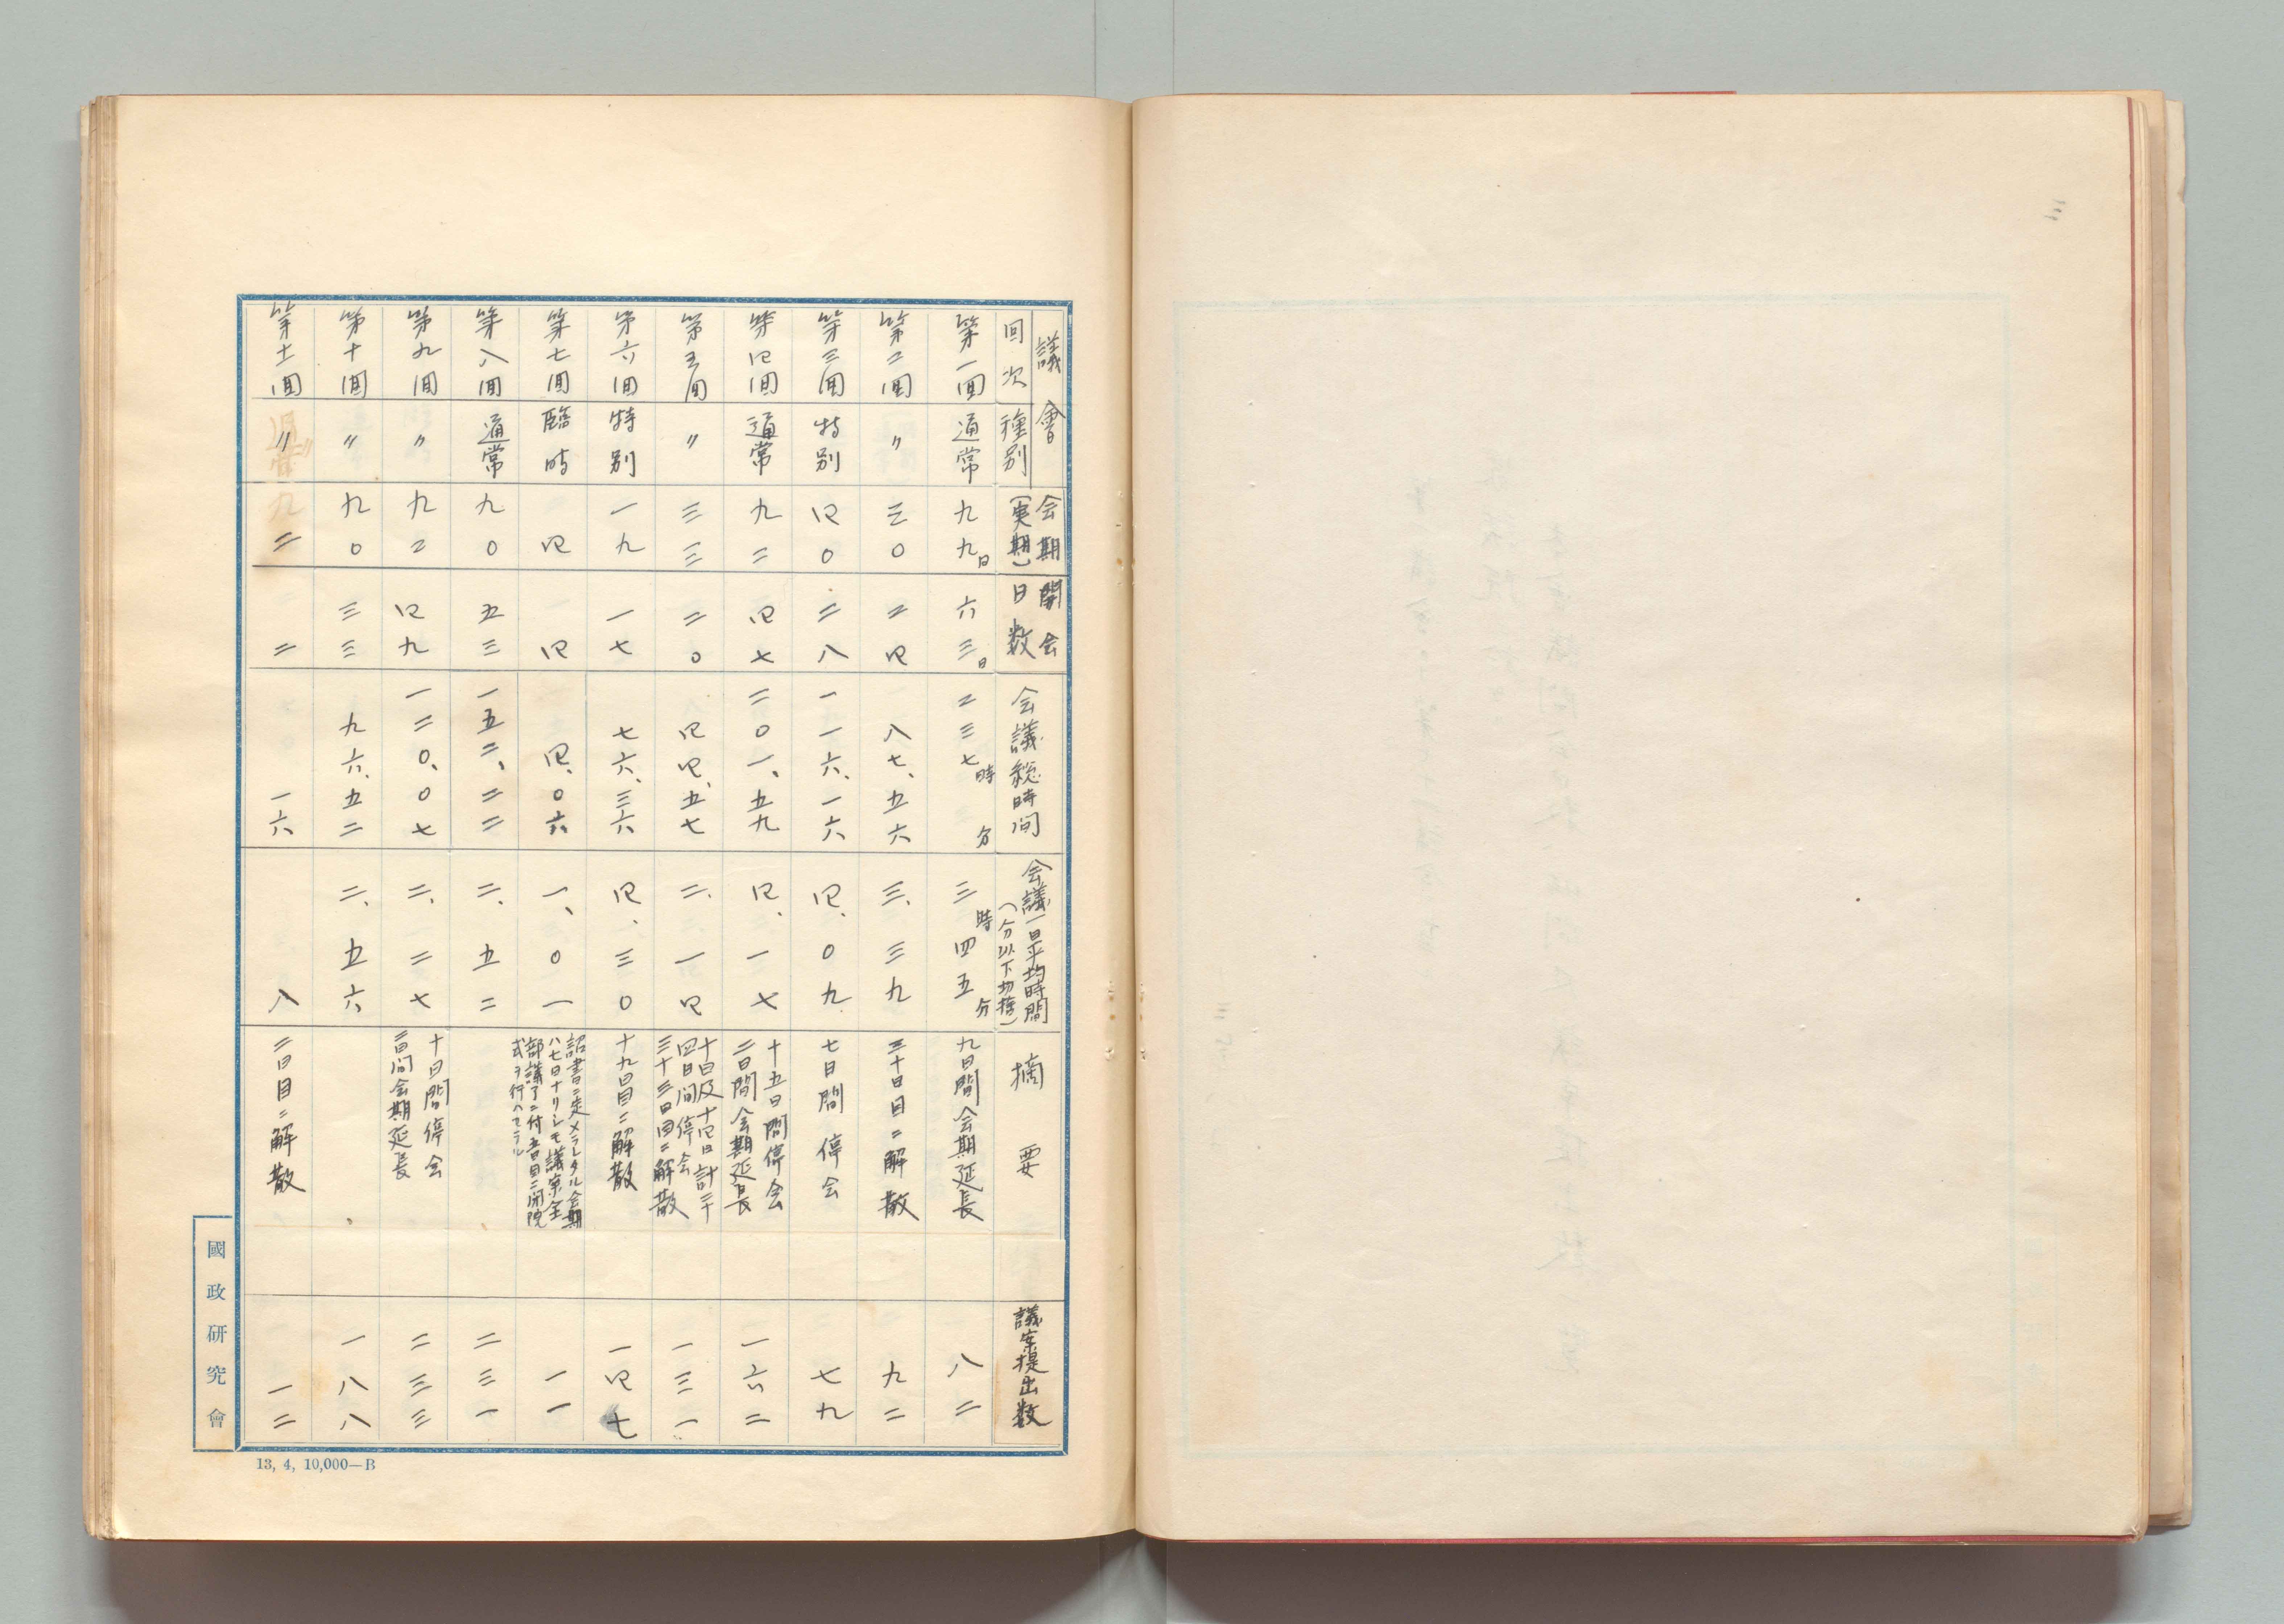 議會
回次
種別
会期
(実期)
開会
日数
会議総時间
会議一日平均時間
(分以下切捨)
摘要
議案提出数
第一回 通常 九九日 六三日 二三七時 分 三時四五分 九日間会期延長 八二
第二回 〃 三〇 二四 八七、五六 三、三九 三十日目ニ解散 九二
第三回 特別 四〇 二八 一一六、一六 四、〇九 七日間停会 七九
第四回 通常 九二 四七 二〇一、五九 四、一七 十五日間停会
二日間会期延長 一六二
第五回 〃 三三 二〇 四四、五七 二、一四 十日及十四日計二十
四日间停会
三十三日目ニ解散 一三一
第六回 特別 一九 一七 七六、三六 四、三〇 十九日目ニ解散 一四七
第七回 臨時 四 四 四、〇六 一、〇一 詔書ニ定メラレタル会期
ハ七日ナリシモ議案全
部議了ニ付五日目ニ閉院
式ヲ行ハセラル 一一
第八回 通常 九〇 五三 一五二、二二 二、五二 二三一
第九回 〃 九二 四九 一二〇、〇七 二、二七 十日間停会
二日间会期延長 二三三
第十回 〃 九〇 三三 九六、五二 二、五六 一八八
第十一回 〃 二 二 一六 八 二日目ニ解散 一二
國政研究會
13, 4, 10,000—B